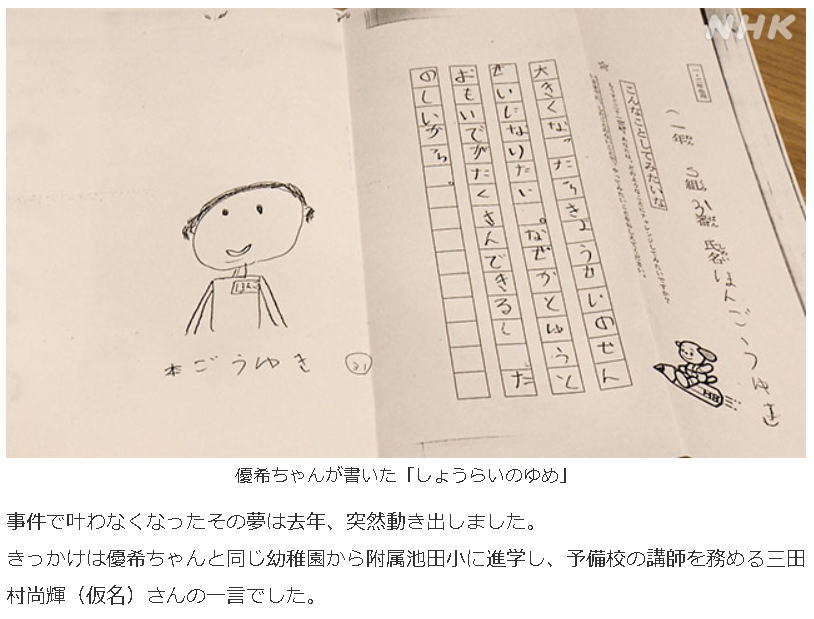 NHK
こんなことしてみたいな
氏名 ほんごうゆき
大きくなったらきようかいのせん
せいになりたい。なぜかとゆうと
おもいでがたくさんできるし た
のしいから。
HB
本ごうゆき
優希ちゃんが書いた「しょうらいのゆめ」
事件で叶わなくなったその夢は去年、突然動き出しました。
きっかけは優希ちゃんと同じ幼稚園から附属池田小に進学し、予備校の講師を務める三田
村尚輝（仮名）さんの一言でした。